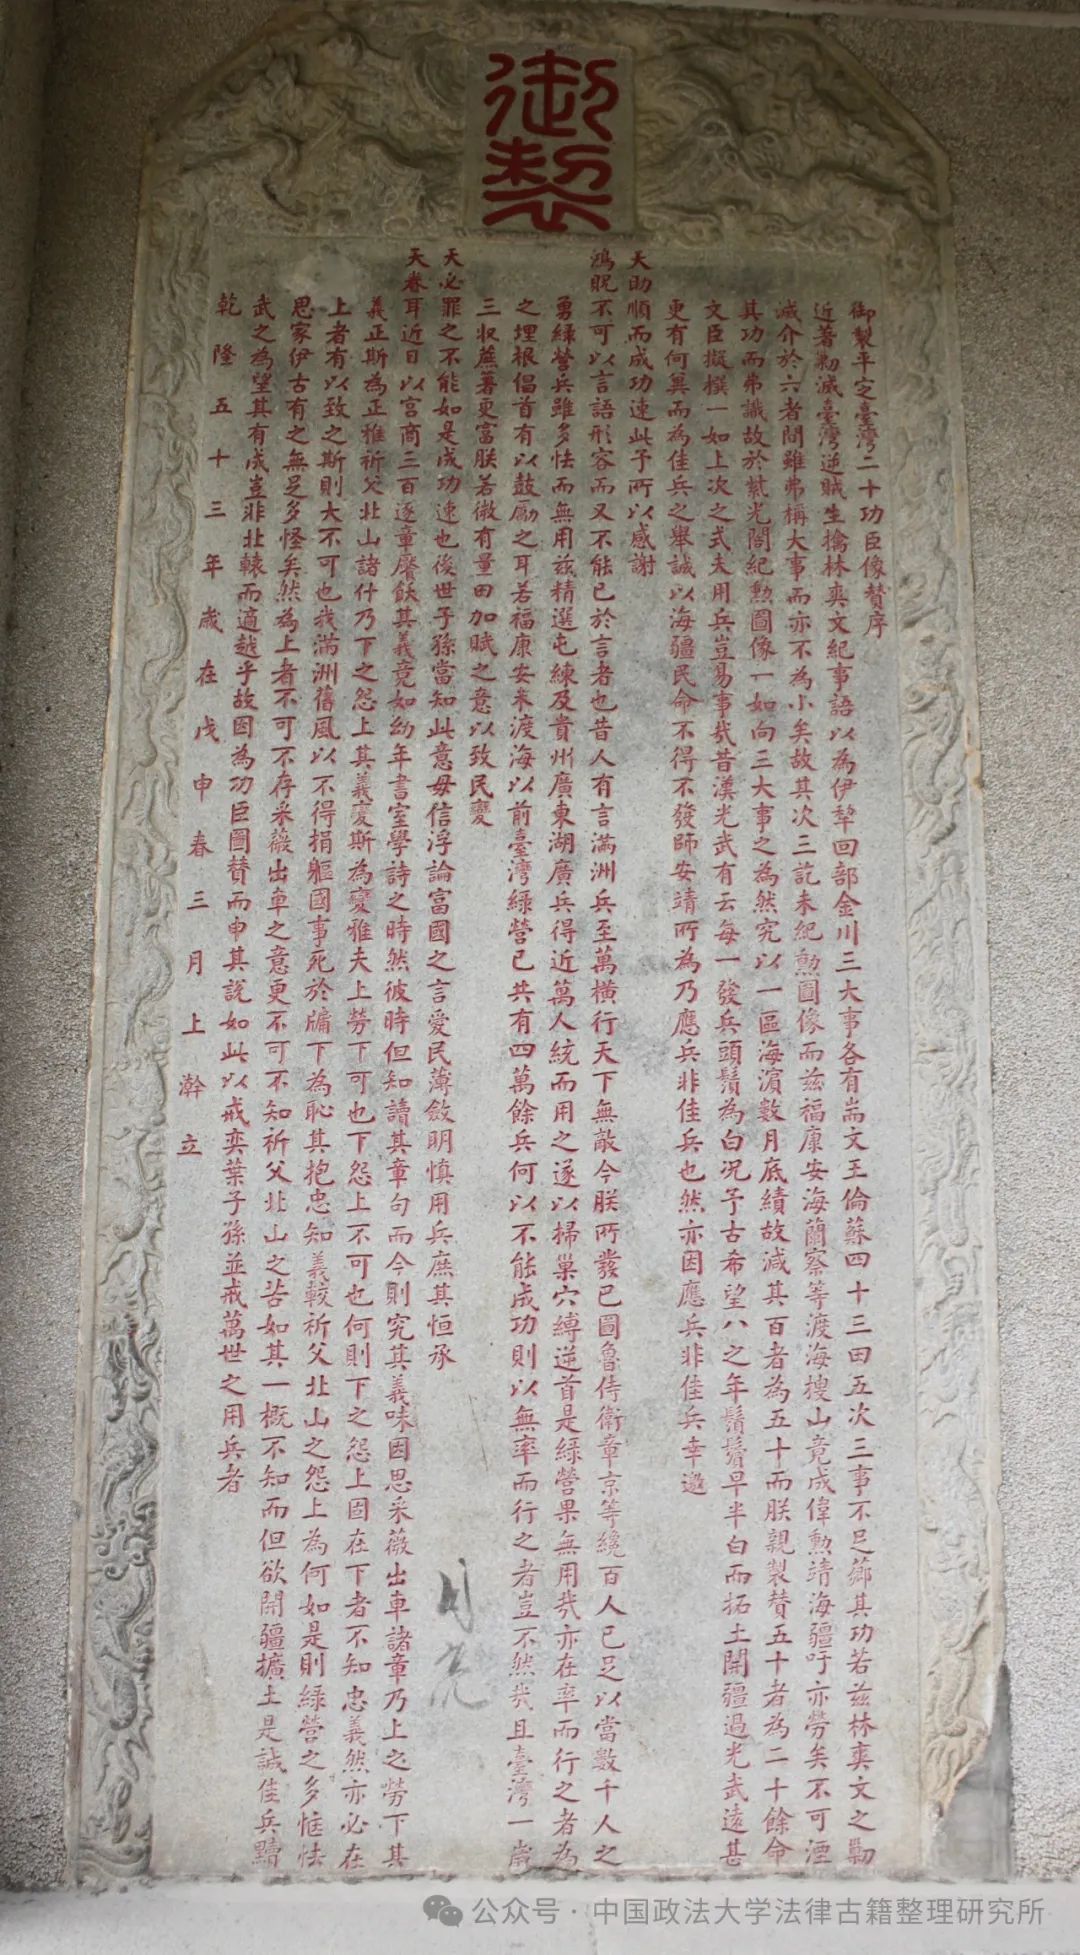 御製
御製平定臺灣二十功臣像贊序
近著勦滅臺灣逆賊生擒林爽文紀事語以為伊犂回部金川三大事各有耑文王倫蘇四十三田五次三事不足薌其功若茲林爽文之勦
滅介於六者間雖弗稱大事而亦不為小矣故其次三訖未紀勲圖像而茲福康安海蘭察等渡海搜山竟成偉勲靖海疆吁亦勞矣不可湮
其功而弗識故於紫光閣紀勲圖像一如向三大事之為然究以一區海濵數月底績故減其百者為五十而朕親製贊五十者為二十餘命
文臣擬撰一如上次之式夫用兵豈易事㢤昔漢光武有云每一發兵頭鬚為白况予古希望八之年鬚鬢早半白而拓土開疆過光武遠甚
更有何兾而為佳兵之舉誠以海疆民命不得不發師安靖所為乃應兵非佳兵也然亦因應兵非佳兵幸邀
天助順而成功速此予所以感謝
鴻貺不可以言語形容而又不能已於言者也昔人有言滿洲兵至萬橫行天下無敵今朕所發已圖魯侍衛章京等纔百人已足以當數千人之
勇綠營兵雖多怯而無用茲精選屯練及貴州廣東湖廣兵得近萬人統而用之遂以掃巢穴縛逆首是綠營果無用㢤亦在率而行之者為
之埋根倡首有以鼓勵之耳若福康安未渡海以前臺灣綠營已共有四萬餘兵何以不能成功則以無率而行之者豈不然㢤且臺灣一歲
三収蔗薯更富朕若微有量田加賦之意以致民變
天必罪之不能如是成功速也後世子孫當知此意毋信浮論富國之言愛民薄斂明慎用兵庶其恒承
天眷耳近日以宮商三百逐章賡飫其義竟如幼年書室學詩之時然彼時但知讀其章句而今則究其義味因思采薇出車諸章乃上之勞下其
義正斯為正雅祈父北山諸什乃下之怨上其義變斯為變雅夫上勞下可也下怨上不可也何則下之怨上固在下者不知忠義然亦必在
上者有以致之斯則大不可也我滿洲舊風以不得捐軀國事死於牖下為恥其抱忠知義較祈父北山之怨上為何如是則綠營之多恇怯
思家伊古有之無足多怪矣然為上者不可不存采薇出車之意更不可不知祈父北山之苦如其一概不知而但欲開疆擴土是誠佳兵黷
武之為望其有成豈非北轅而適越乎故因為功臣圖贊而申其說如此以戒奕葉子孫並戒萬世之用兵者
乾隆五十三年歲在戊申春三月上澣立
公众号·中国政法大学法律古籍整理研究所